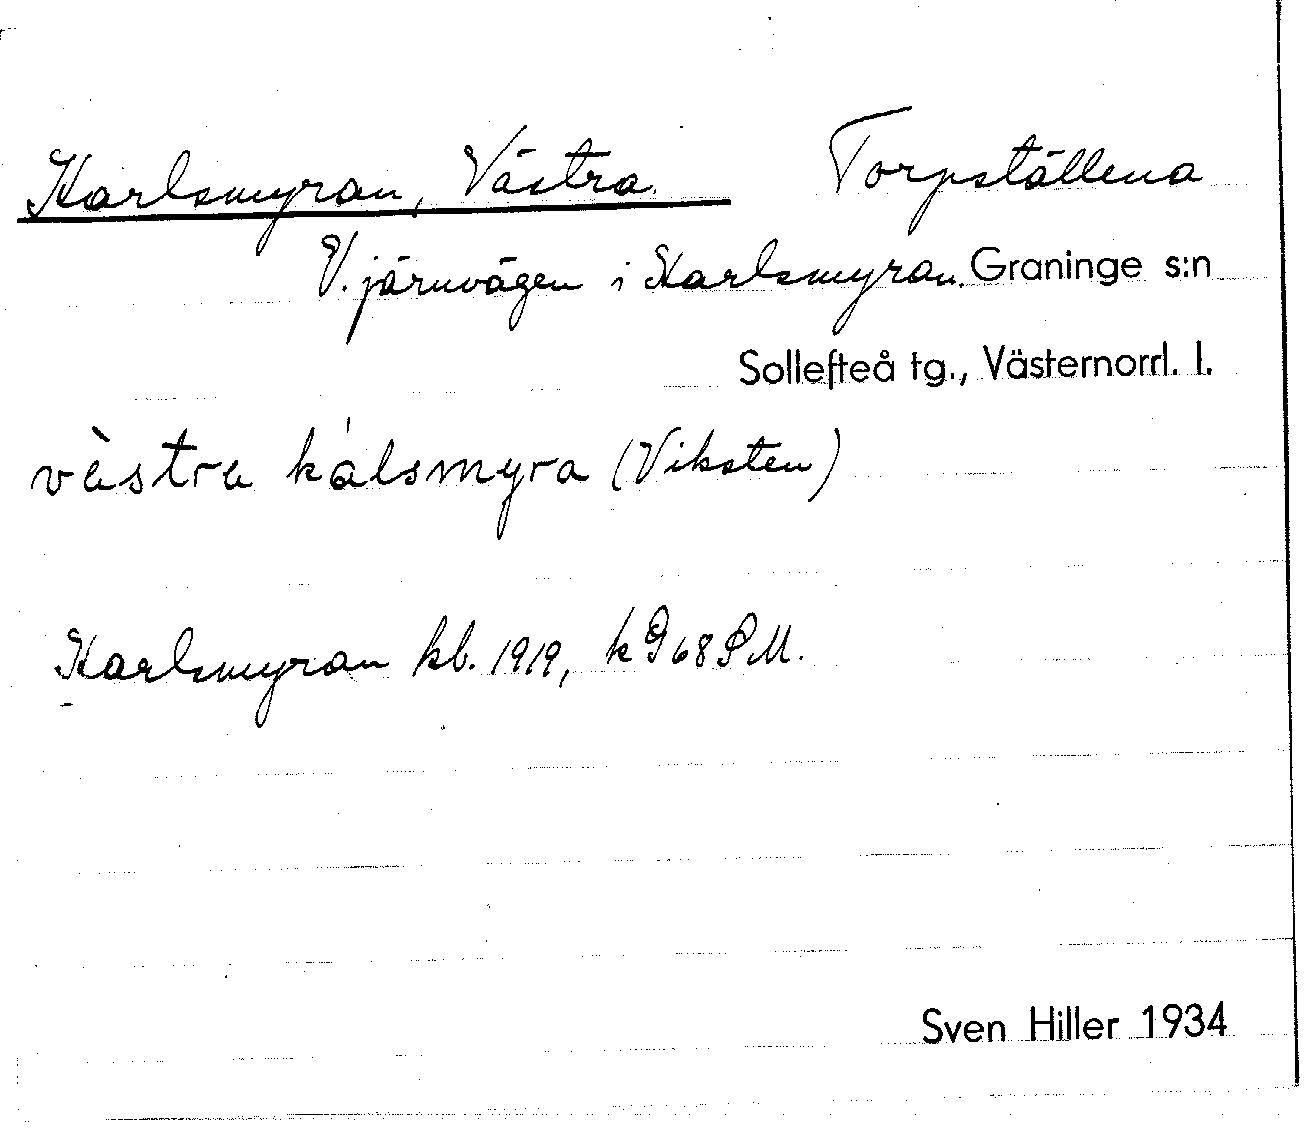 Karlsmyran, Västra Torpställena
V. järnvägen i Karlsmyran. Graninge s:n
Sollefteå tg., Västernorrl. l.
vàstra kálsmyra (Viksten)
Karlsmyran kb. 1919, k G 68 S M.
Sven Hiller 1934